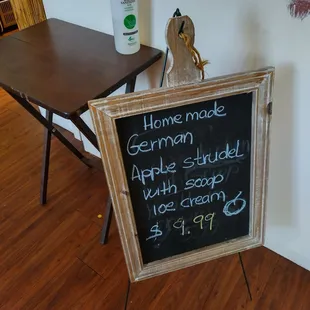 Homemade
German
Apple strudel
with scoop
ice cream
$ 9.99